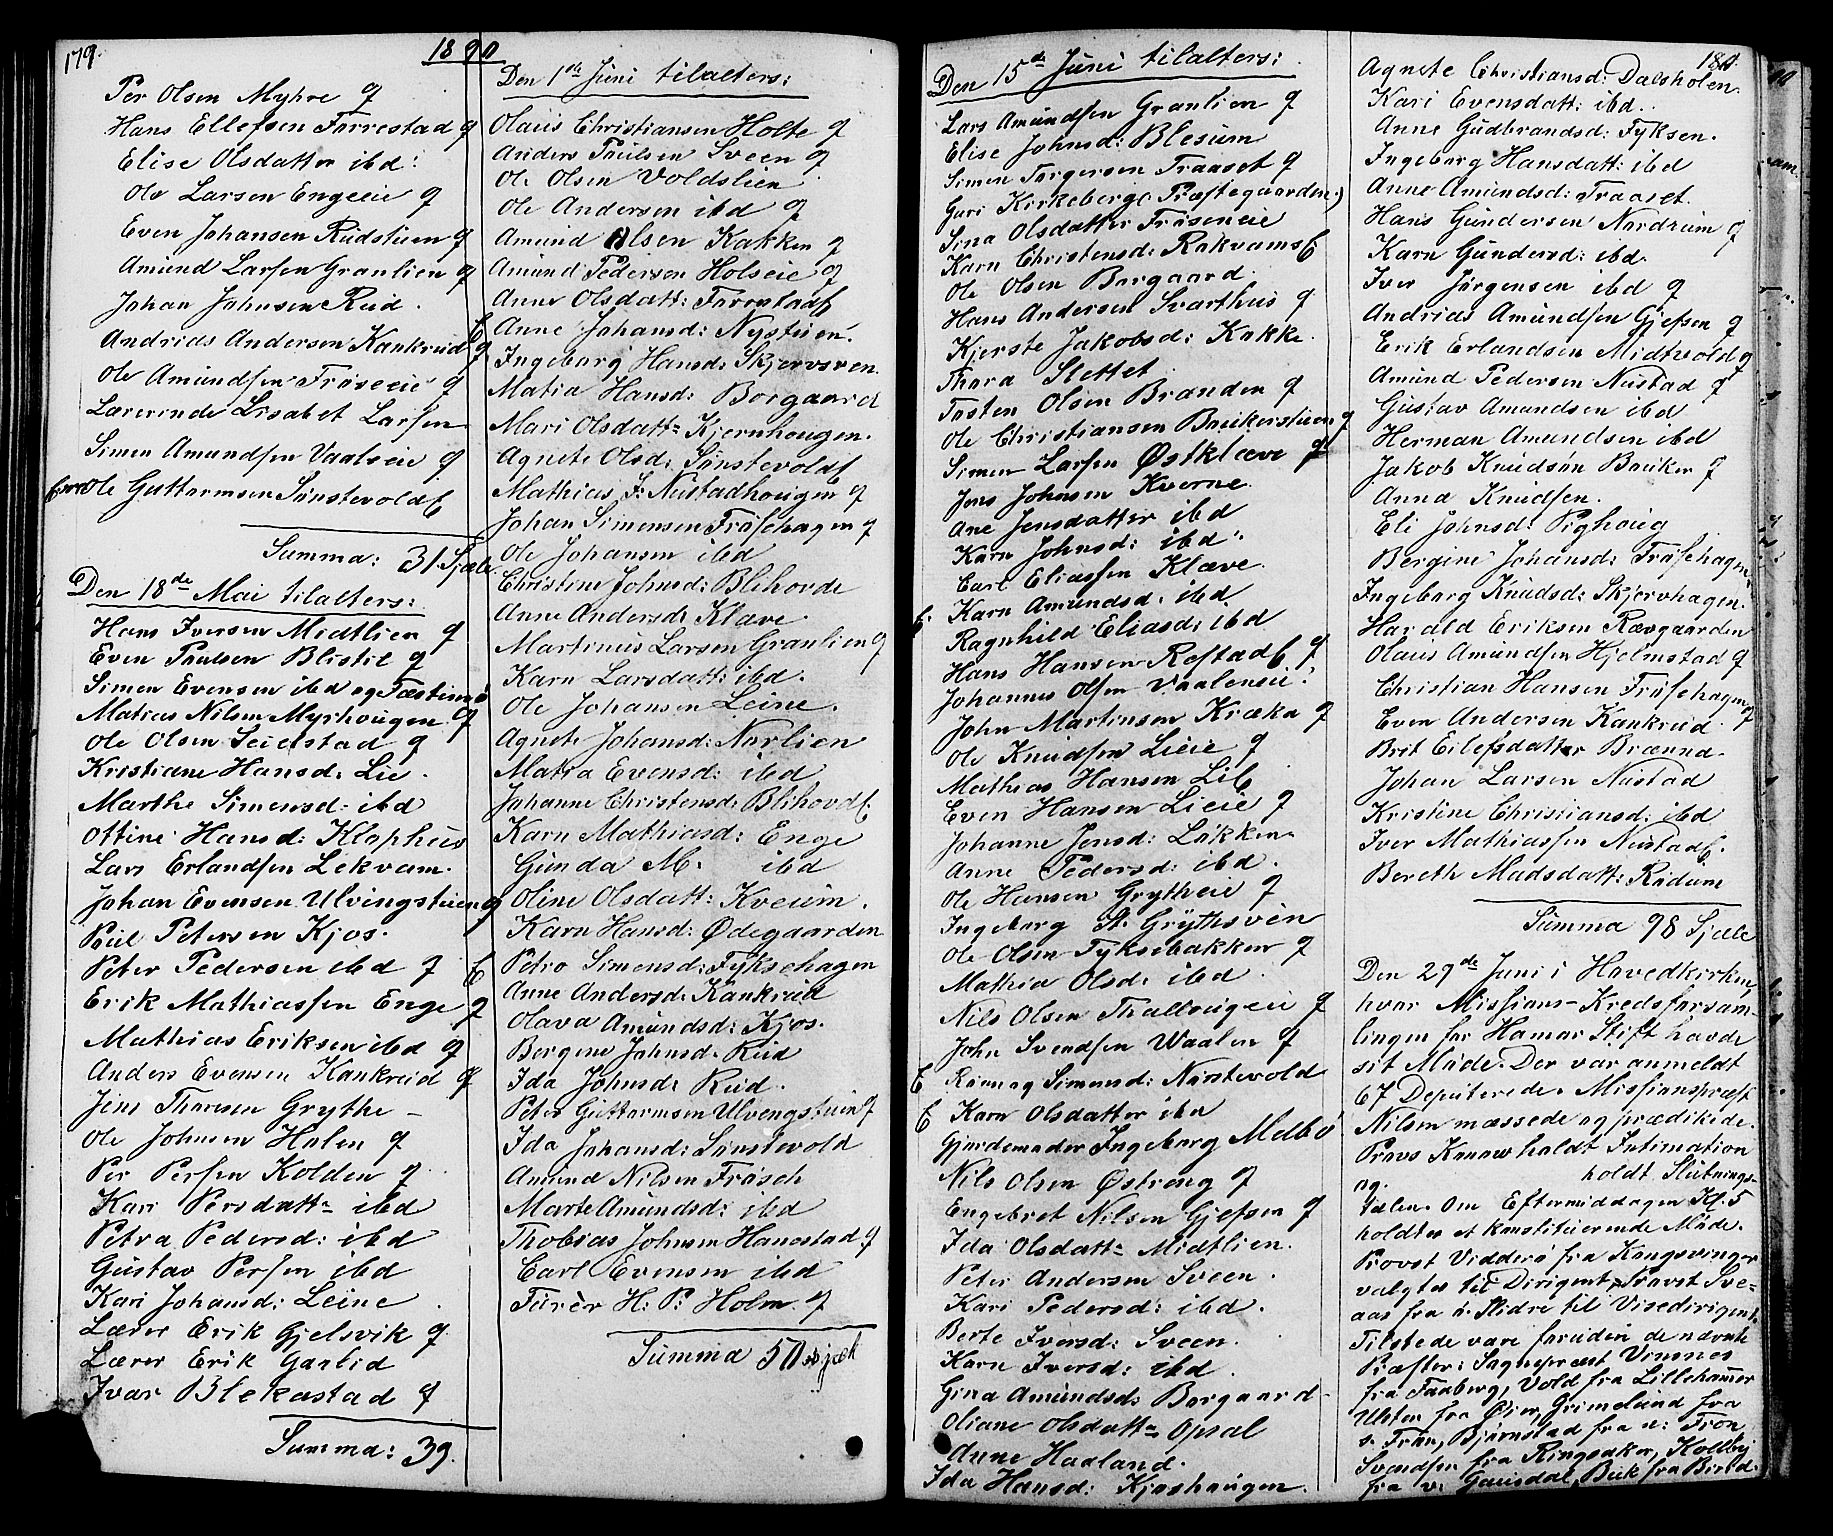 179.
1890
Per Olsen Myhre g
Hans Ellefsen Forrestad g
Elise Olsdatter ibd:
Ole Larsen Engeeie g
Even Johansen Rüdstüen g
Amünd Larsen Granlien g
Johan Johnsen Rüd.
Andrias Andersen Kankrüd g
Ole Amündsen Fröseeie g
Lærerinde Lisabet Larsen
Simen Amundsen Vaalseie g
Ole Guttormsen Sønstevold E
Summa: 31 Sjæle
Den 18de Mai tilalters:
Hans Iversen Midtlien g
Even Paulsen Blistil g
Simen Evensen ibd og Fæstemø
Matias Nilsen Myrhougen g
Ole Olsen Seielstad g
Kristiane Hansd: Lie.
Marthe Simensd: ibd
Ottine Hansd: Klophus
Lars Erlandsen Lekvam.
Johan Evensen Ulvingstüen g
Poül Petersen Kjos.
Peter Pedersen ibd g
Erik Mathiassen Enge g
Mathias Eriksen ibd g
Anders Evensen Kankrüd g
Jens Thoresen Grythe –
Ole Johnsen Holen g
Per Persen Kolden g
Kari Persdatt: ibd
Petra Pedersd: ibd
Güstav Persen ibd
Kari Johansd: Leine
Lærer Erik Gjelsvik g
Lærer Erik Gaalid
Ivar Blekastad g
Summa: 39.
Den 1ste Jüni tilalters:
Olaüs Christiansen Holte g
Anders Paülsen Sveen g
Ole Olsen Voldslien
Ole Andersen ibd g
Amünd Olsen Kakken g
Amünd Pedersen Holseie g
Anne Olsdatt: Forrestad E
E Anne Johansd: Nystüen.
Ingeborg Hansd: Skjervøren.
Matia Hansd: Borgaard
Mari Olsdatt: Kjernhougen.
Agnete Olsd: Sønstevold E
Mathias J: Nüstadhougen g
Johan Simensen Frösehagen g
Ole Johansen ibd
Christine Johnsd: Blihovde
Anne Andersd: Klæve.
Martinüs Larsen Granlien g
Karn Larsdatt: ibd.
Ole Johansen Leine.
Agnete Johansd: Norlien
Matia Evensd: ibd
Johanne Christensd: Blihovd E
Karn Mathiasd: Enge
Günda M. ibd
Oline Olsdatt: Kveüm.
Karn Hansd: Ødegaarden
E Petro Simensd: Fyksehagen
Anne Andersd: Kankrüd
Olava Amündsd: Kjos.
Bergene Johnsd: Rüd
Ida Johnsd: Rüd.
Peter Güttormsen Ulvengstüen g
Ida Johansd: Sønstevold
Amünd Nilsen Frösch
Marte Amündsd: ibd
Thobias Johnsen Hanestad g
Carl Evensen ibd
Fürer H: P: Holm. g
Summa 50 Sjæle
180.
Den 15de Jüni tilalters:
Lars Amündsen Granlien g
Elise Johnsd: Blesüm
Simen Torgersen Traaset g
Guri Kirkeberg (Præstegaarden)
Sina Olsdatter Fröseneie
Karn Christensd: Rakvams E
Ole Olsen Borgaard.
Hans Andersen Svarthüs g
Kjerste Jakobsd: Kakke.
Thora Slettet
Tosten Olsen Branden g
Ole Christiansen Baükerstüen g
Simen Larsen Østklæve g
Jens Johnsen Kverne.
Ane Jensdatter ibd
Karn Johnsd: ibd.
Carl Eliassen Klæve.
Karn Amündsd: ibd
E. Ragnhild Eliasd: ibd
Hans Hansen Røstad E g
Johannes Olsen Vaalenseie.
John Martinsen Kræka g
Ole Knudsen Lieie g
Mathias Hansen Li E
Even Hansen Lieie g
Johanne Jensd: Løkken
Anne Pedersd: ibd.
Ole Hansen Grytheie g
Ingeborg St: Grythsven
Ole Olsen Fyksebakken g
Mathia Olsd: ibd.
Nils Olsen Thallougeie g
John Svendsen Waalen g
E Rønnog Simensd: Nørstevold
E Karn Olsdatter ibd
Gjordemoder Ingeborg Melbö
Nils Olsen Østreng g
Engebret Nilsen Gjefsen g
Ida Olsdatt: Midtlien.
Peter Andersen Sveen.
Kari Pedersd: ibd.
Berte Iversd: Sveen.
Karn Iversd: ibd.
Gina Amündsd: Borgaard
Oliane Olsdatt: Opsal
Anne Haaland.
Ida Hansd: Kjoshaügen.
Agnete Christiansd: Dalsholen
Kari Evensdatt: ibd.
Anne Güdbrandsd: Fyksen.
Ingeborg Hansdatt: ibd
Anne Amündsd: Traaset.
Hans Gündersen Nordrüm g
Karn Gündersd: ibd.
Iver Jörgensen ibd g
Andrias Amündsen Gjefsen g
Erik Erlandsen Midtvold g
Amünd Pedersen Nüstad g
Güstav Amundsen ibd
Herman Amundsen ibd
Jakob Knüdsøn Baüker g
Anna Knüdsen.
Eli Johnsd: Pighoüg
Bergine Johansd: Frösehagen
Ingeborg Knüdsd: Skjervhagen.
Harald Eriksen Rævgaarden
Olaus Amündsen Hjelmstad g
Christian Hansen Frösehagen g
Even Andersen Kankrüd.
Brit Eilefsdatter Brænna.
Johan Larsen Nüstad
Kristine Christiansd: ibd
Iver Mathiassen Nüstad E.
Bereth Madsdatt: Rüdüm
Summa 98 Sjæle
Den 29de Juni i Hovedkirken,
hvor Missions-Kredsforsam-
lingen for Hamar Stift havde
sit Møde. Der var anmeldt
67 Deputerede. Missionspræst
Nilsen messede og prædikede.
Provs Kanow holdt Intimation
og holdt Slütnings-
talen. Om Eftermiddagen Kl. 5
holdtes et konstitüerende Møde.
Provst Vidderø fra Kongsvinger
valgtes til Dirigent, Provst Sve-
aas fra ö. Slidre til Visedirigent.
Tilstede vare foruden de nævnte
Præster: Sognepræst Vinsnes
fra Faaberg, Vold fra Lillehamer
Ulsten fra Øier, Grimelünd fra
s. Fron, Bjørnstad fra n: Fron
Svendsen fra Ringsaker, Koldby
fra v. Gausdal, Bük fra Birid.